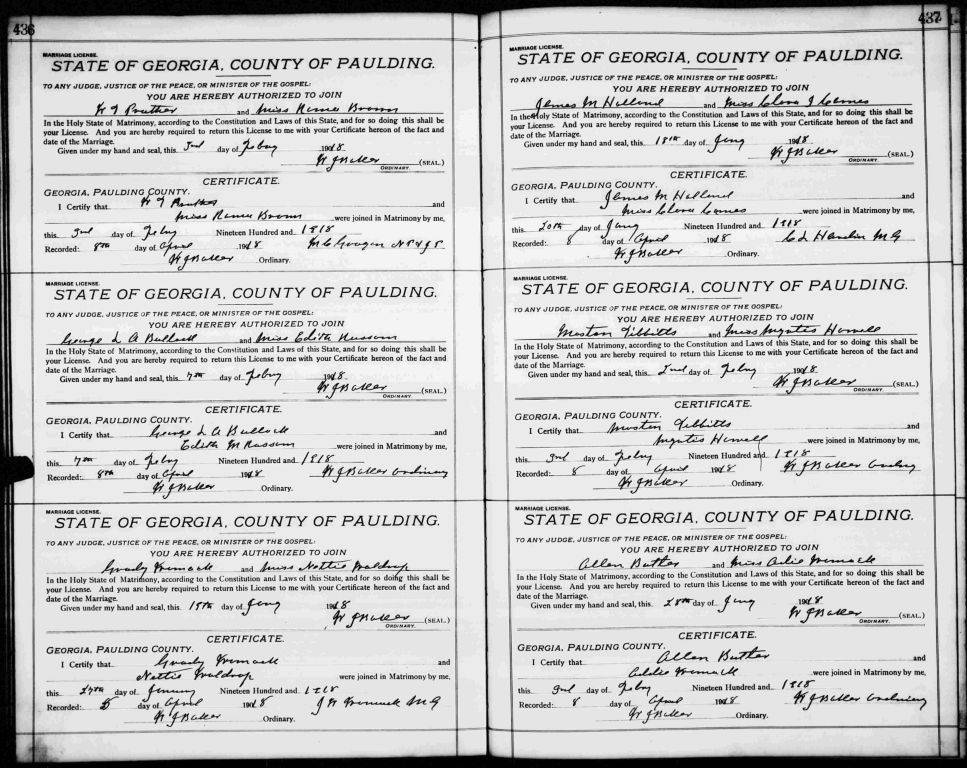 436
MARRIAGE LICENSE.
STATE OF GEORGIA, COUNTY OF PAULDING.
TO ANY JUDGE, JUSTICE OF THE PEACE, OR MINISTER OF THE GOSPEL:
YOU ARE HEREBY AUTHORIZED TO JOIN
and Miss Brown
In the Holy State of Matrimony, according to the Constitution and Laws of this State, and for so doing this shall be
your License. And you are hereby required to return this License to me with your Certificate hereon of the fact and
date of the Marriage.
Given under my hand and seal, this 3rd day of Feby 1918
W J Baker (SEAL.)
ORDINARY.
CERTIFICATE.
GEORGIA, PAULDING COUNTY.
I Certify that and
Miss Brown were joined in Matrimony by me,
this 3rd day of Feby Nineteen Hundred and 1918
Recorded: 8th day of April 1918
W J Baker Ordinary.
MARRIAGE LICENSE.
STATE OF GEORGIA, COUNTY OF PAULDING.
TO ANY JUDGE, JUSTICE OF THE PEACE, OR MINISTER OF THE GOSPEL:
YOU ARE HEREBY AUTHORIZED TO JOIN
George L A Bullock and Miss Edith Russom
In the Holy State of Matrimony, according to the Constitution and Laws of this State, and for so doing this shall be
your License. And you are hereby required to return this License to me with your Certificate hereon of the fact and
date of the Marriage.
Given under my hand and seal, this 7th day of Feby 1918
W J Baker (SEAL.)
ORDINARY.
CERTIFICATE.
GEORGIA, PAULDING COUNTY.
I Certify that George L A Bullock and
Edith M Russom were joined in Matrimony by me,
this 7th day of Feby Nineteen Hundred and 1918
Recorded: 8th day of April 1918 W J Baker Ordinary
W J Baker Ordinary.
MARRIAGE LICENSE.
STATE OF GEORGIA, COUNTY OF PAULDING.
TO ANY JUDGE, JUSTICE OF THE PEACE, OR MINISTER OF THE GOSPEL:
YOU ARE HEREBY AUTHORIZED TO JOIN
Grady Womack and Miss Nettie Waldrop
In the Holy State of Matrimony, according to the Constitution and Laws of this State, and for so doing this shall be
your License. And you are hereby required to return this License to me with your Certificate hereon of the fact and
date of the Marriage.
Given under my hand and seal, this 15th day of Jany 1918
W J Baker (SEAL.)
ORDINARY.
CERTIFICATE.
GEORGIA, PAULDING COUNTY.
I Certify that Grady Womack and
Nettie Waldrop were joined in Matrimony by me,
this 27th day of January Nineteen Hundred and 1918
Recorded: day of April 1918 J W Womack M G
W J Baker Ordinary.
437
MARRIAGE LICENSE.
STATE OF GEORGIA, COUNTY OF PAULDING.
TO ANY JUDGE, JUSTICE OF THE PEACE, OR MINISTER OF THE GOSPEL:
YOU ARE HEREBY AUTHORIZED TO JOIN
James M Holland and Miss
In the Holy State of Matrimony, according to the Constitution and Laws of this State, and for so doing this shall be
your License. And you are hereby required to return this License to me with your Certificate hereon of the fact and
date of the Marriage.
Given under my hand and seal, this 18th day of Jany 1918
W J Baker (SEAL.)
ORDINARY.
CERTIFICATE.
GEORGIA, PAULDING COUNTY.
I Certify that James M Holland and
Miss were joined in Matrimony by me,
this 20th day of Jany Nineteen Hundred and 1918
Recorded: 8 day of April 1918 M G
W J Baker Ordinary.
MARRIAGE LICENSE.
STATE OF GEORGIA, COUNTY OF PAULDING.
TO ANY JUDGE, JUSTICE OF THE PEACE, OR MINISTER OF THE GOSPEL:
YOU ARE HEREBY AUTHORIZED TO JOIN
Moston Tibbitts and Miss Myrtis Howell
In the Holy State of Matrimony, according to the Constitution and Laws of this State, and for so doing this shall be
your License. And you are hereby required to return this License to me with your Certificate hereon of the fact and
date of the Marriage.
Given under my hand and seal, this 2nd day of Feby 1918
W J Baker (SEAL.)
ORDINARY.
CERTIFICATE.
GEORGIA, PAULDING COUNTY.
I Certify that Moston Tibbitts and
Myrtis Howell were joined in Matrimony by me,
this 3rd day of Feby Nineteen Hundred and 1918
Recorded: 8 day of April 1918 W J Baker Ordinary
W J Baker Ordinary.
MARRIAGE LICENSE.
STATE OF GEORGIA, COUNTY OF PAULDING.
TO ANY JUDGE, JUSTICE OF THE PEACE, OR MINISTER OF THE GOSPEL:
YOU ARE HEREBY AUTHORIZED TO JOIN
Allen Butler and Miss Womack
In the Holy State of Matrimony, according to the Constitution and Laws of this State, and for so doing this shall be
your License. And you are hereby required to return this License to me with your Certificate hereon of the fact and
date of the Marriage.
Given under my hand and seal, this 28th day of Jany 1918
W J Baker (SEAL.)
ORDINARY.
CERTIFICATE.
GEORGIA, PAULDING COUNTY.
I Certify that Allen Butler and
Addie Womack were joined in Matrimony by me,
this 3rd day of Feby Nineteen Hundred and 1918
Recorded: 8 day of April 1918 W J Baker Ordinary
W J Baker Ordinary.